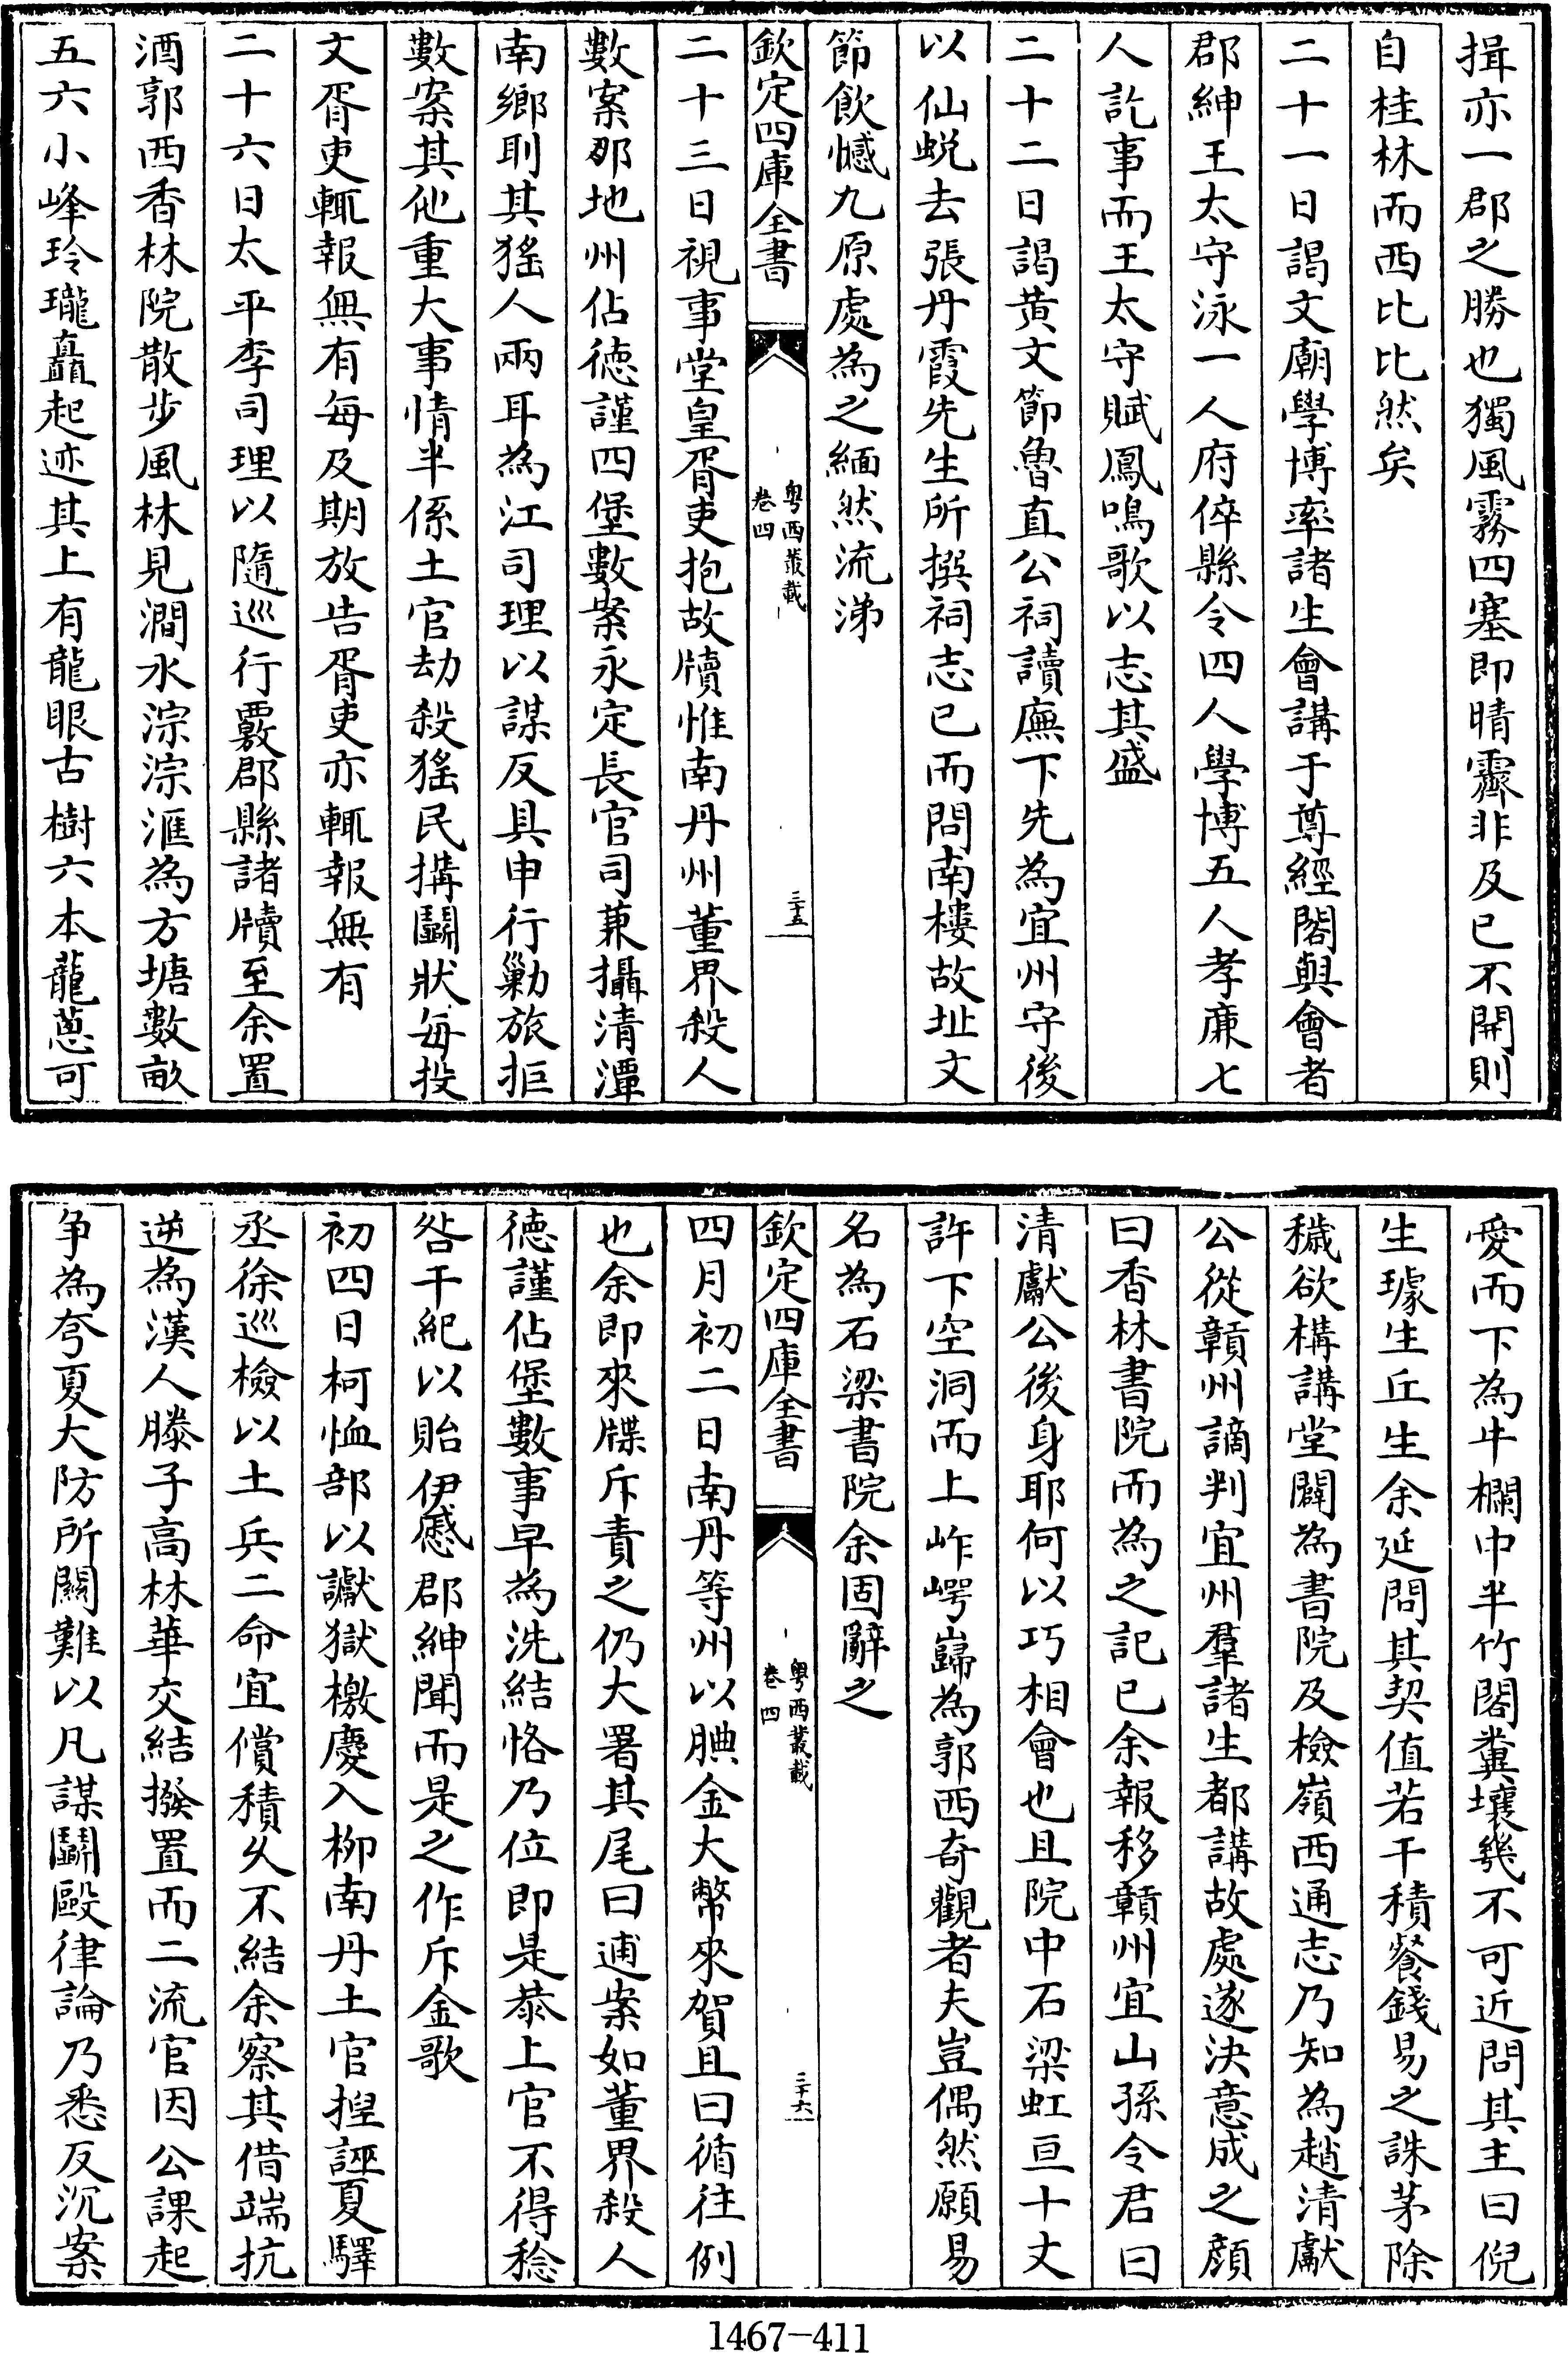 揖亦一郡之勝也獨風霧四塞即晴霽非及巳不開則
自桂林而西比比然矣
二十一日謁文廟學博率諸生會講于尊經閣與會者
郡紳王太守泳一人府倅縣令四人學博五人孝廉七
人訖事而王太守賦鳳鳴歌以志其盛
二十二日謁黄文節魯直公祠讀廡下先為宜州守後
以仙蜕去張丹霞先生所撰祠志已而問南樓故址文
節飲憾九原處為之緬然流涕
欽定四庫全書
粤西叢載
卷四
三十五
二十三日視事堂皇胥吏抱故牘惟南丹州董界殺人
數案那地州佔徳謹四堡數案永定長官司兼攝清潭
南鄉刵其猺人兩耳為江司理以謀反具申行勦旅拒
數案其他重大事情半係土官劫殺猺民搆鬭狀每投
文胥吏輒報無有每及期放告胥吏亦輒報無有
二十六日太平李司理以隨巡行覈郡縣諸牘至余置
酒郭西香林院散步風林見澗水淙淙滙為方塘數畝
五六小峰玲瓏矗起迹其上有龍眼古樹六本蘢蔥可
愛而下為牛欄中半竹閣糞壤㡬不可近問其主曰倪
生璩生丘生余延問其契值若干積餐錢易之誅茅除
穢欲構講堂闢為書院及檢嶺西通志乃知為趙清獻
公從贑州謫判宜州羣諸生都講故處遂決意成之顔
曰香林書院而為之記已余報移贑州宜山孫令君曰
清獻公後身耶何以巧相會也且院中石梁虹亘十丈
許下空洞而上岞崿巋為郭西奇觀者夫豈偶然願易
名為石梁書院余固辭之
欽定四庫全書
粤西叢載
卷四
三十六
四月初二日南丹等州以腆金大幣來賀且曰循往例
也余即來牒斥責之仍大署其尾曰逋案如董界殺人
徳謹佔堡數事早為洗結恪乃位即是恭上官不得稔
咎干紀以貽伊慼郡紳聞而是之作斥金歌
初四日柯恤部以讞獄檄慶入柳南丹土官揑誣夏驛
丞徐巡檢以土兵二命宜償積久不結余察其借端抗
逆為漢人滕子高林華交結撥置而二流官因公課起
争為夸夏大防所關難以凡謀鬭毆律論乃悉反沉案
1467-411